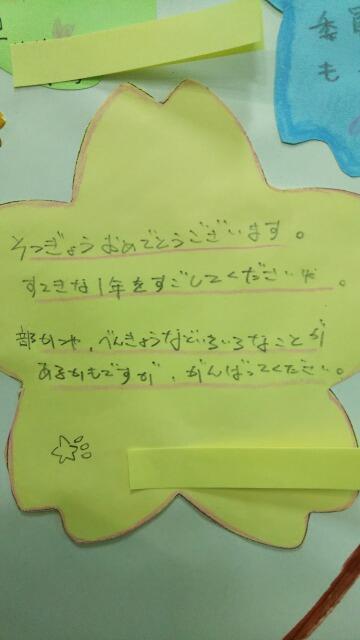 委員
も
そつぎょうおめでとうございます。
すてきな1年をすごしてくださいね。
部かつや、べんきょうなどいろいろなことが
あるかもですが、がんばってください。